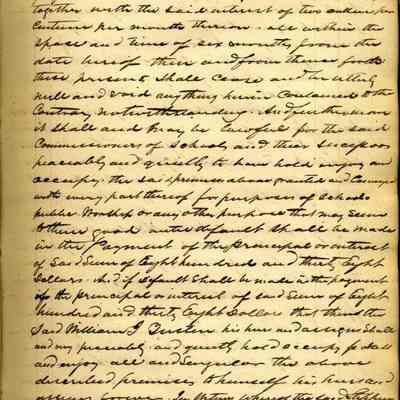 together with the said interest of two and one per
Centum per month thereon, all within the
space and time of six months from the
date hereof then and from thence forth
these present shall cease and be utterly
null and void any thing herein contained to the
Contrary notwithstanding. And furthermore
it shall and may be lawful for the said
Commissioners of Schools and their successors
peaceably and quietly to have hold enjoy and
occupy the said premises above granted and Conveyed
with every part thereof for purposes of Schools
public Worship or any other purpose that may seem
to them good until default shall be made
in the Payment of the Principal or interest
of Said Sum of Eight hundred and thirty Eight
Dollars. And if default shall be made in the payment
of the principal or interest of said Sum of Eight
hundred and thirty Eight Dollars that then the
Said William J his heirs and assigns shall
and may peaceably and quietly hold occupy
and enjoy all and Singular the above
described premises to himself his heirs and
assigns forever. In Witness whereof the said